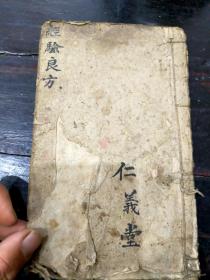 經驗良方
仁義堂